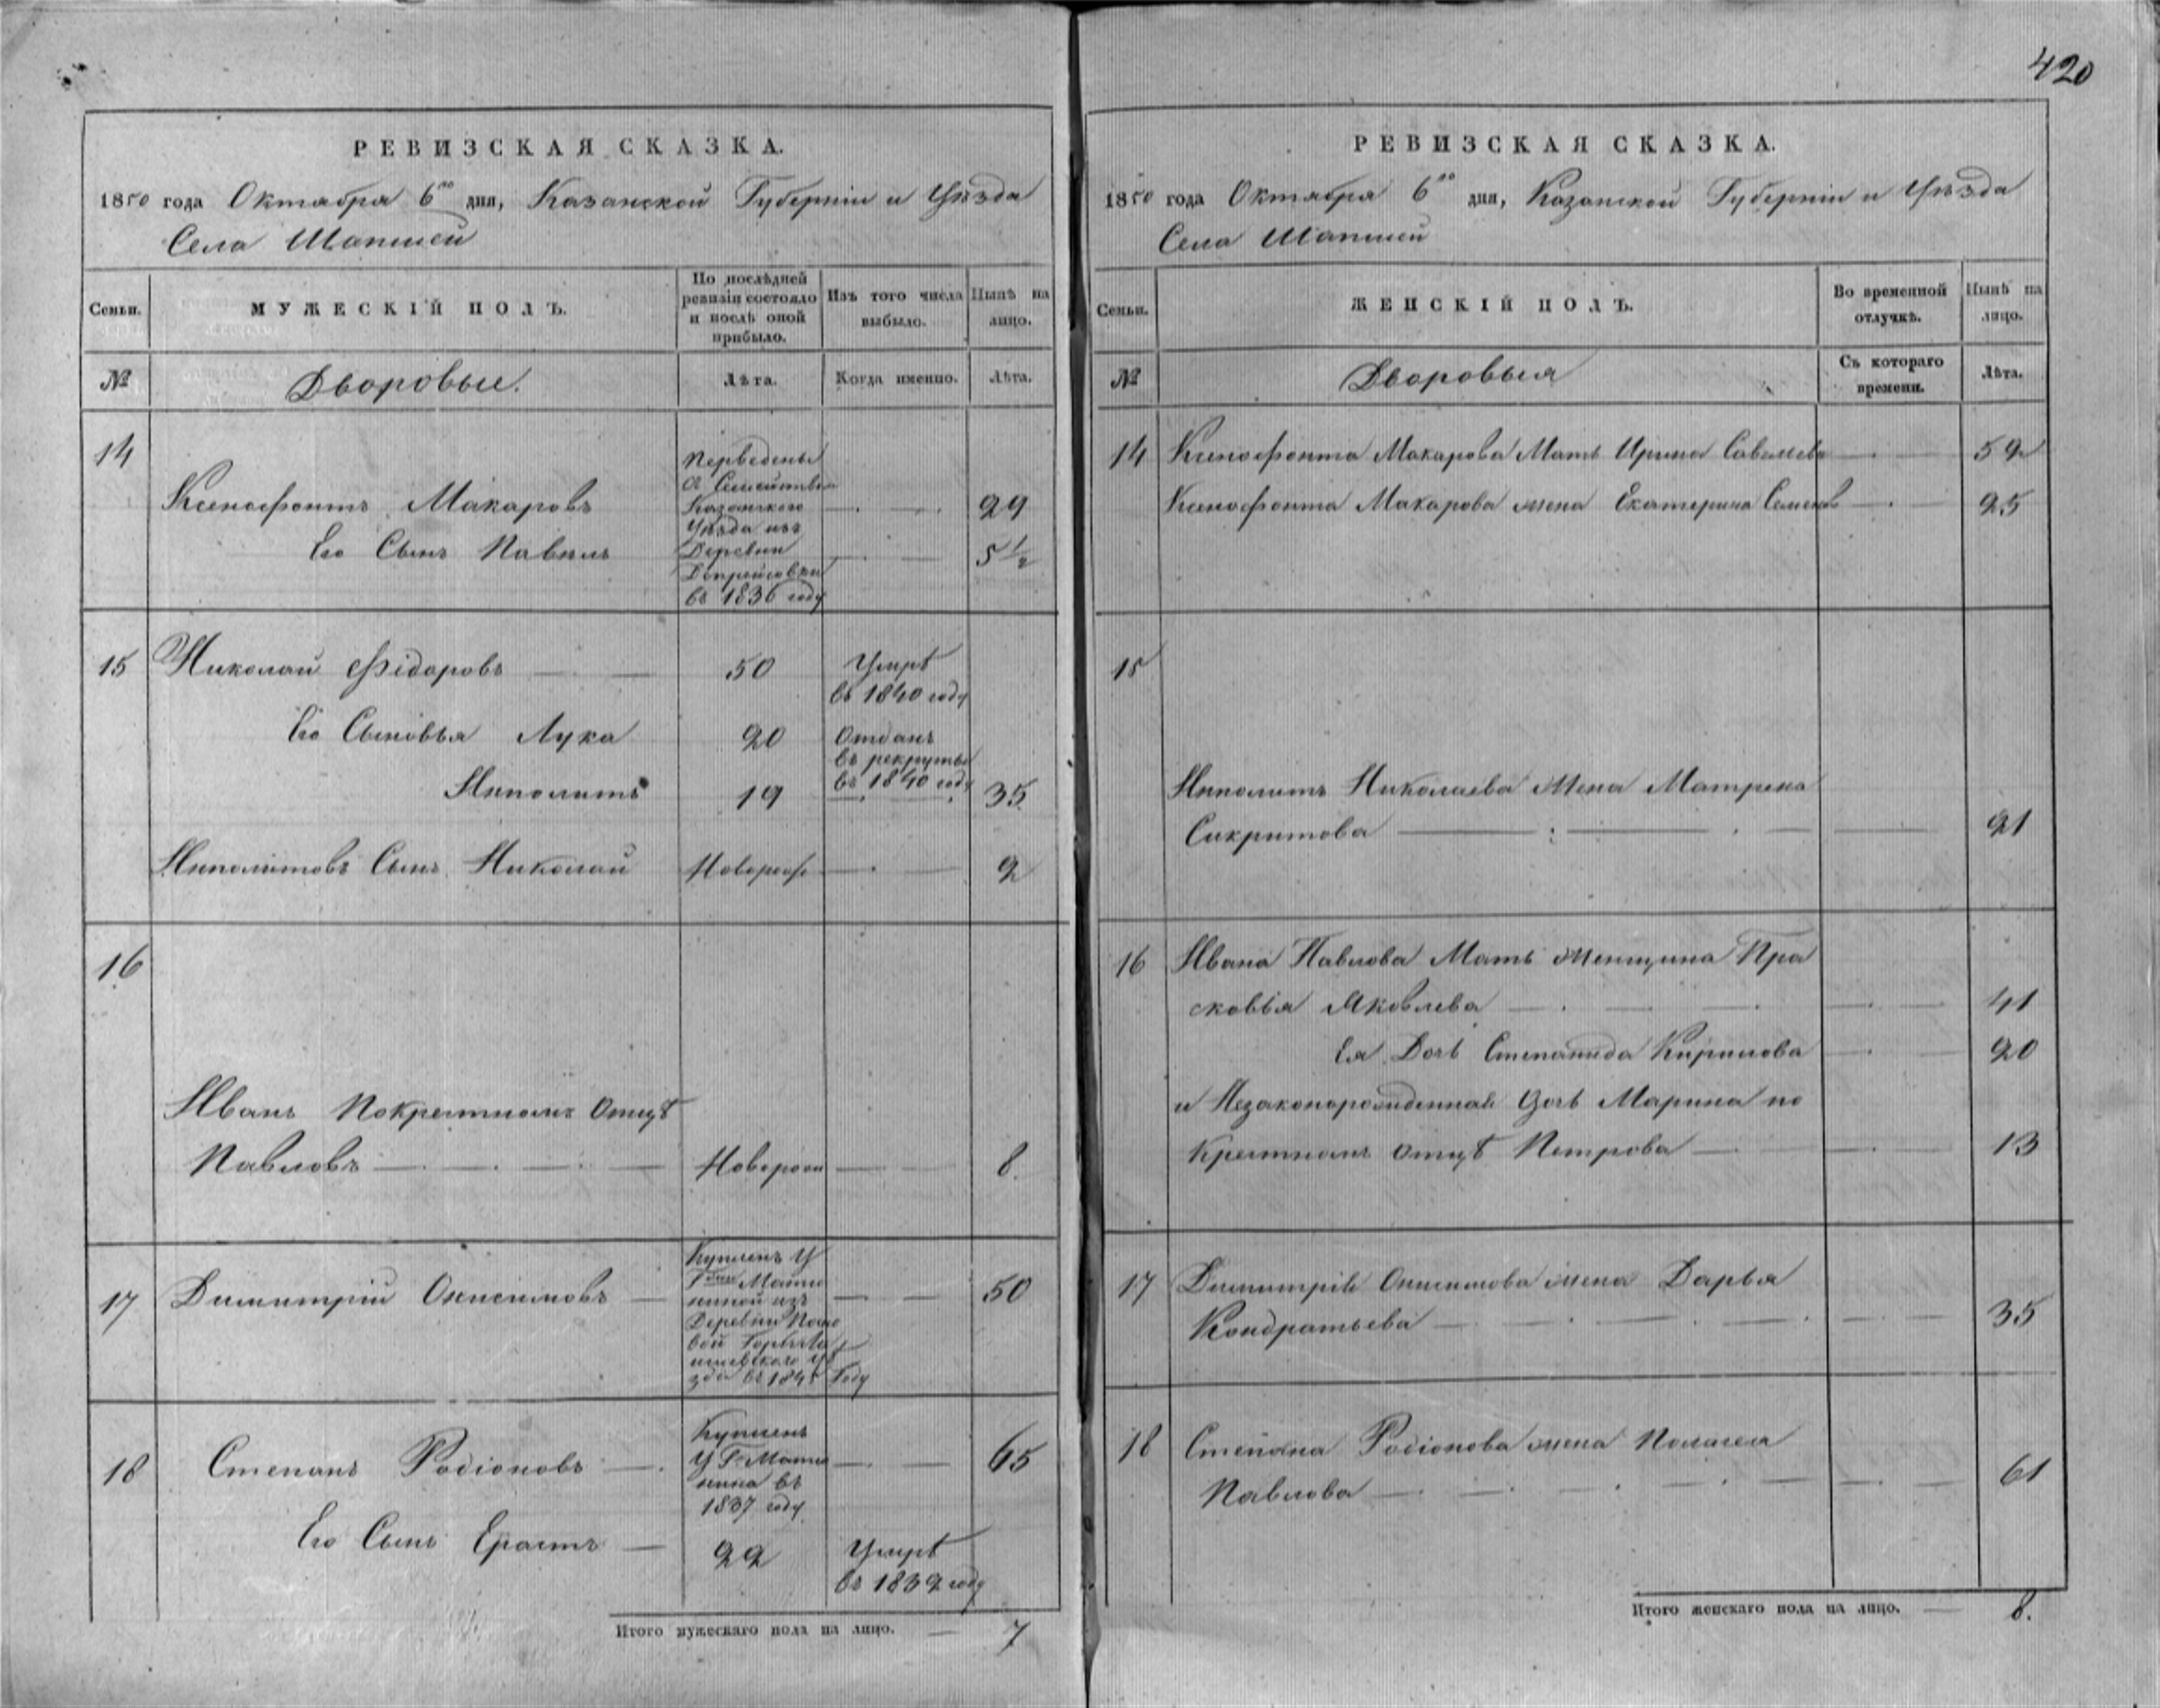 420
РЕВИЗСКАЯ СКАЗКА.
1850 года Октября 6го дня, Казанской Губерніи и Уѣзда
Села Шапшей
Семьи. МУЖЕСКІЙ ПОЛЪ. По послѣдней ревизіи состояло и послѣ оной прибыло. Изъ того числа выбыло. Нынѣ на лицо.
№ Дворовые. Лѣта. Когда именно. Лѣта.
14
Переведены
съ Семействомъ
Ксенофонтъ Макаровъ Казанского 29
Уѣзда изъ
Его Сынъ Павелъ Деревни 5 1/2
въ 1836 году
15 Николай Ѳедоровъ 50 Умръ
въ 1840 году
Его Сыновья Лука 20 Отданъ
въ рекруты
въ 1840 году
Иполитъ 19 35
Иполитовъ Сынъ НиколайНоворож 2
16
Иванъ Покрестномъ Отцѣ
Павловъ Новорож 8
17 Димитрій Онисимовъ 50
Купленъ у
Гжи
изъ
Деревни
зда въ 184 году
18 Степанъ Родіоновъ 65
Купленъ
у Г
въ
1837 году
Его Сынъ Ерастъ 22 Умръ
въ 1839 году
Итого мужескаго пола на лицо. 7
РЕВИЗСКАЯ СКАЗКА.
1850 года Октября 6го дня, Казанской Губерніи и Уѣзда
Села Шапшей
Семьи. ЖЕНСКІЙ ПОЛЪ. Во временной отлучкѣ. Нынѣ на лицо.
№ Дворовыя Съ котораго времени. Лѣта.
14 Ксенофонта Макарова Мать Ирина Савельева 59
Ксенофонта Макарова жена Екатерина Семенова 25
15
Иполитъ Николаева Жена Матрена
21
16 Ивана Павлова Мать женщина Пра
сковья Яковлева 41
Ея Дочь Степанида Кирилова 20
и Незаконорожденная Дочь Марина по
Крестномъ отцѣ Петрова 13
17 Димитрія Онисимова жена Дарья
Кондратьева 35
18 Степана Родіонова жена Пелагея
Павлова 61
Итого женскаго пола на лицо. 8.